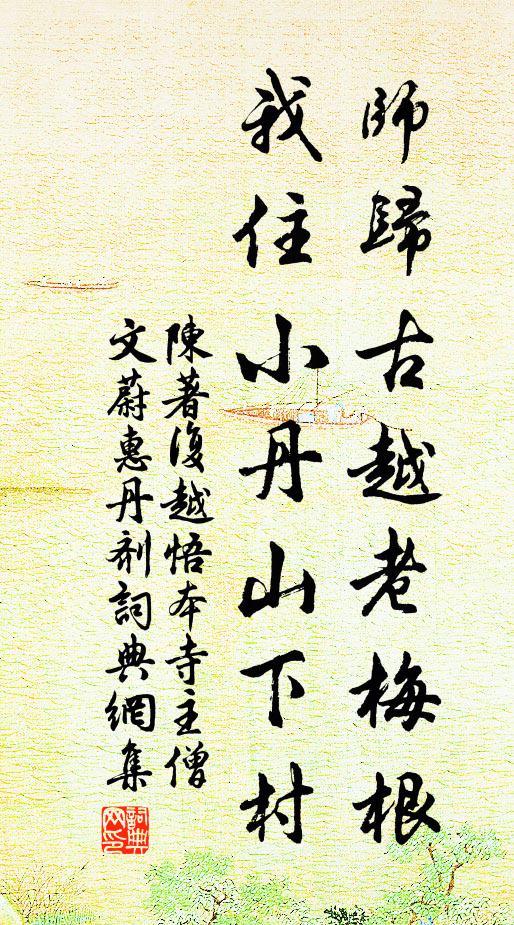 師歸古越老梅根
我住小丹山下村
陳著復越悟本寺主僧
文蔚惠丹劑詞典網集
詞典
网印